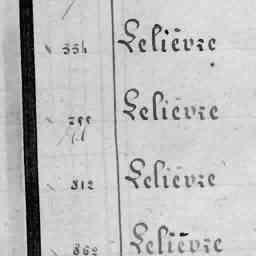 334 Lelièvre
Lelièvre
812 Lelièvre
862 Lelièvre